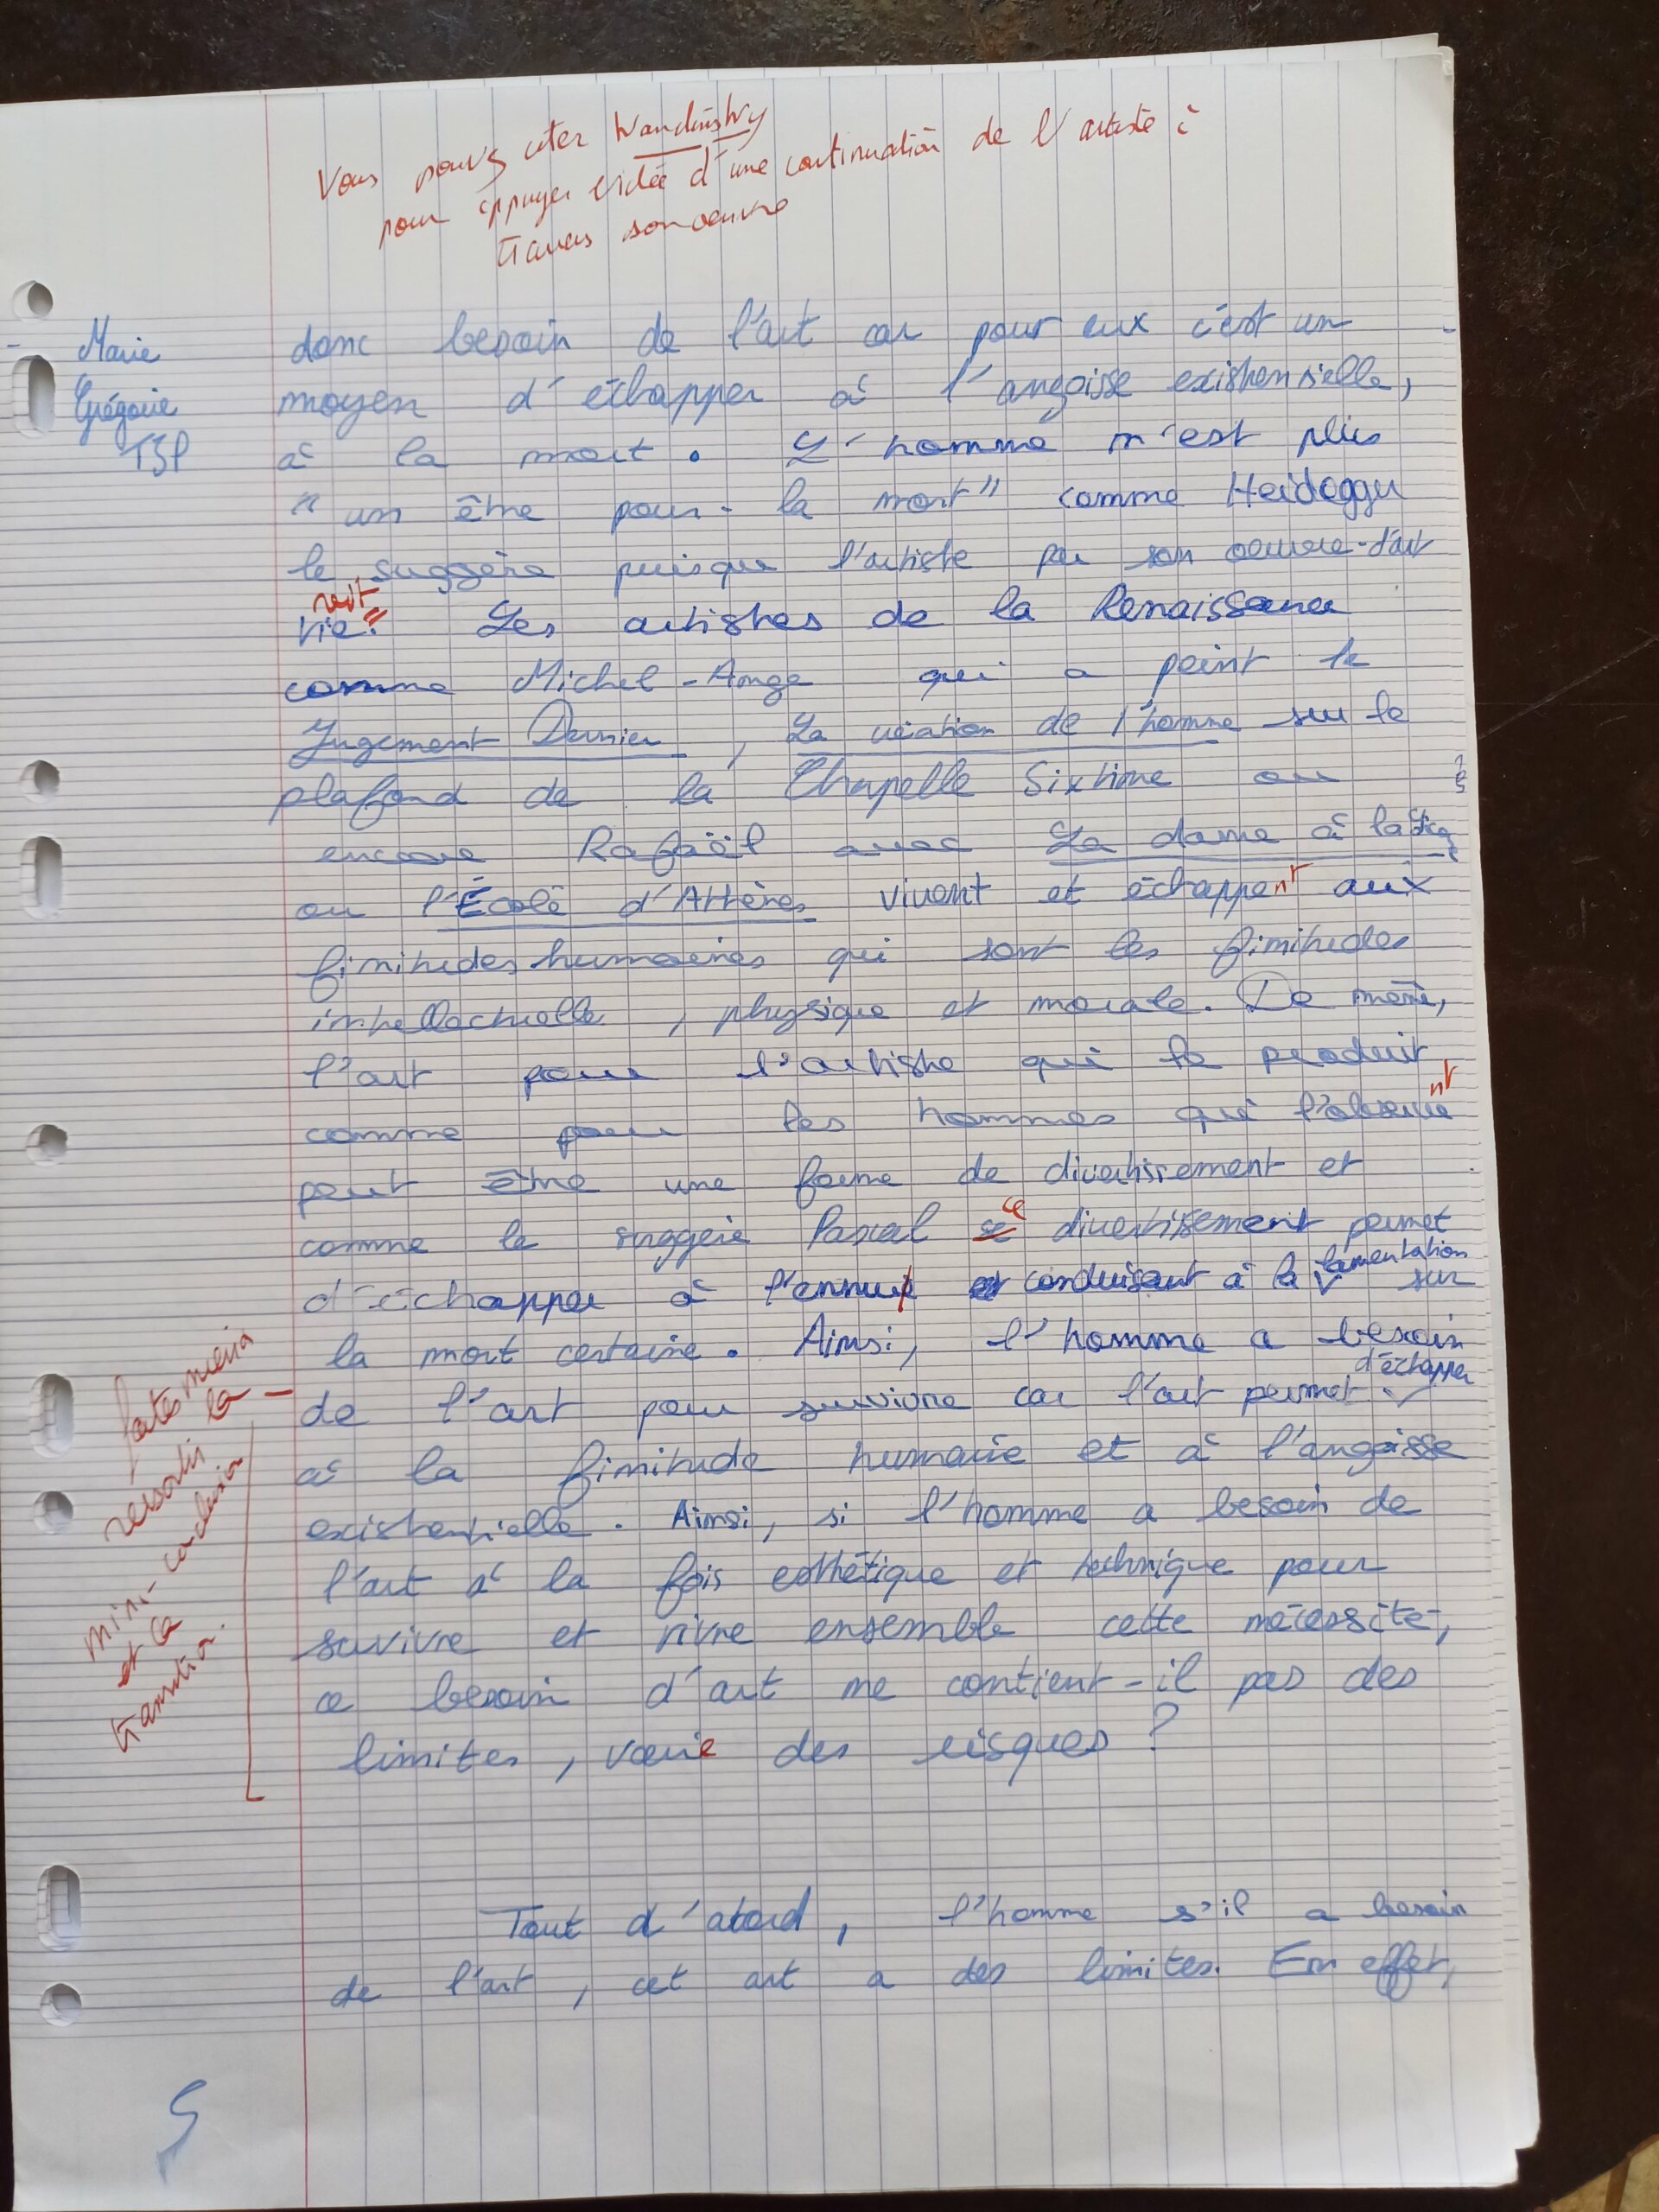 Vous pouvez citer Kandinsky
pour appuyer l'idée d'une continuation de l'artiste à
travers son oeuvre
Marie
Grégoire
TSP
donc besoin de l'art car pour eux c'est un
moyen d'échapper à l'angoisse existensielle,
à la mort. L'homme n'est plus
"un être-pour-la mort" comme Heidegger
le suggère puisque l'artiste par son oeuvre-d'art
vie.
Les artistes de la Renaissance
comme Michel-Ange qui a peint le
Jugement Dernier, La création de l'homme sur le
plafond de la Chapelle Sixtine ou
encore Rafaël avec La dame à la
ou l'École d'Athènes vivent et échappent aux
finitudes humaines qui sont les finitudes
intellectuelle, physique et morale. De même,
l'art pour l'artiste qui le produit
nt
comme pour les hommes qui l'observe
peut être une forme de divertissement et
ce
comme le suggère Pascal se divertissement permet
lamentation
d'échapper à l'ennui conduisant à la sur
la mort certaine. Ainsi, l'homme a besoin
d'échapper
de l'art pour survivre car l'art permet
à la finitude humaine et à l'angoisse
existentielle. Ainsi, si l'homme a besoin de
l'art à la fois esthétique et technique pour
survivre et vivre ensemble cette nécessité,
ce besoin d'art ne contient-il pas des
limites, voire des risques ?
faites mieux
ressortir la
mini-conclusion
et la
transition.
Tout d'abord, l'homme s'il a besoin
de l'art, cet art a des limites. En effet,
5